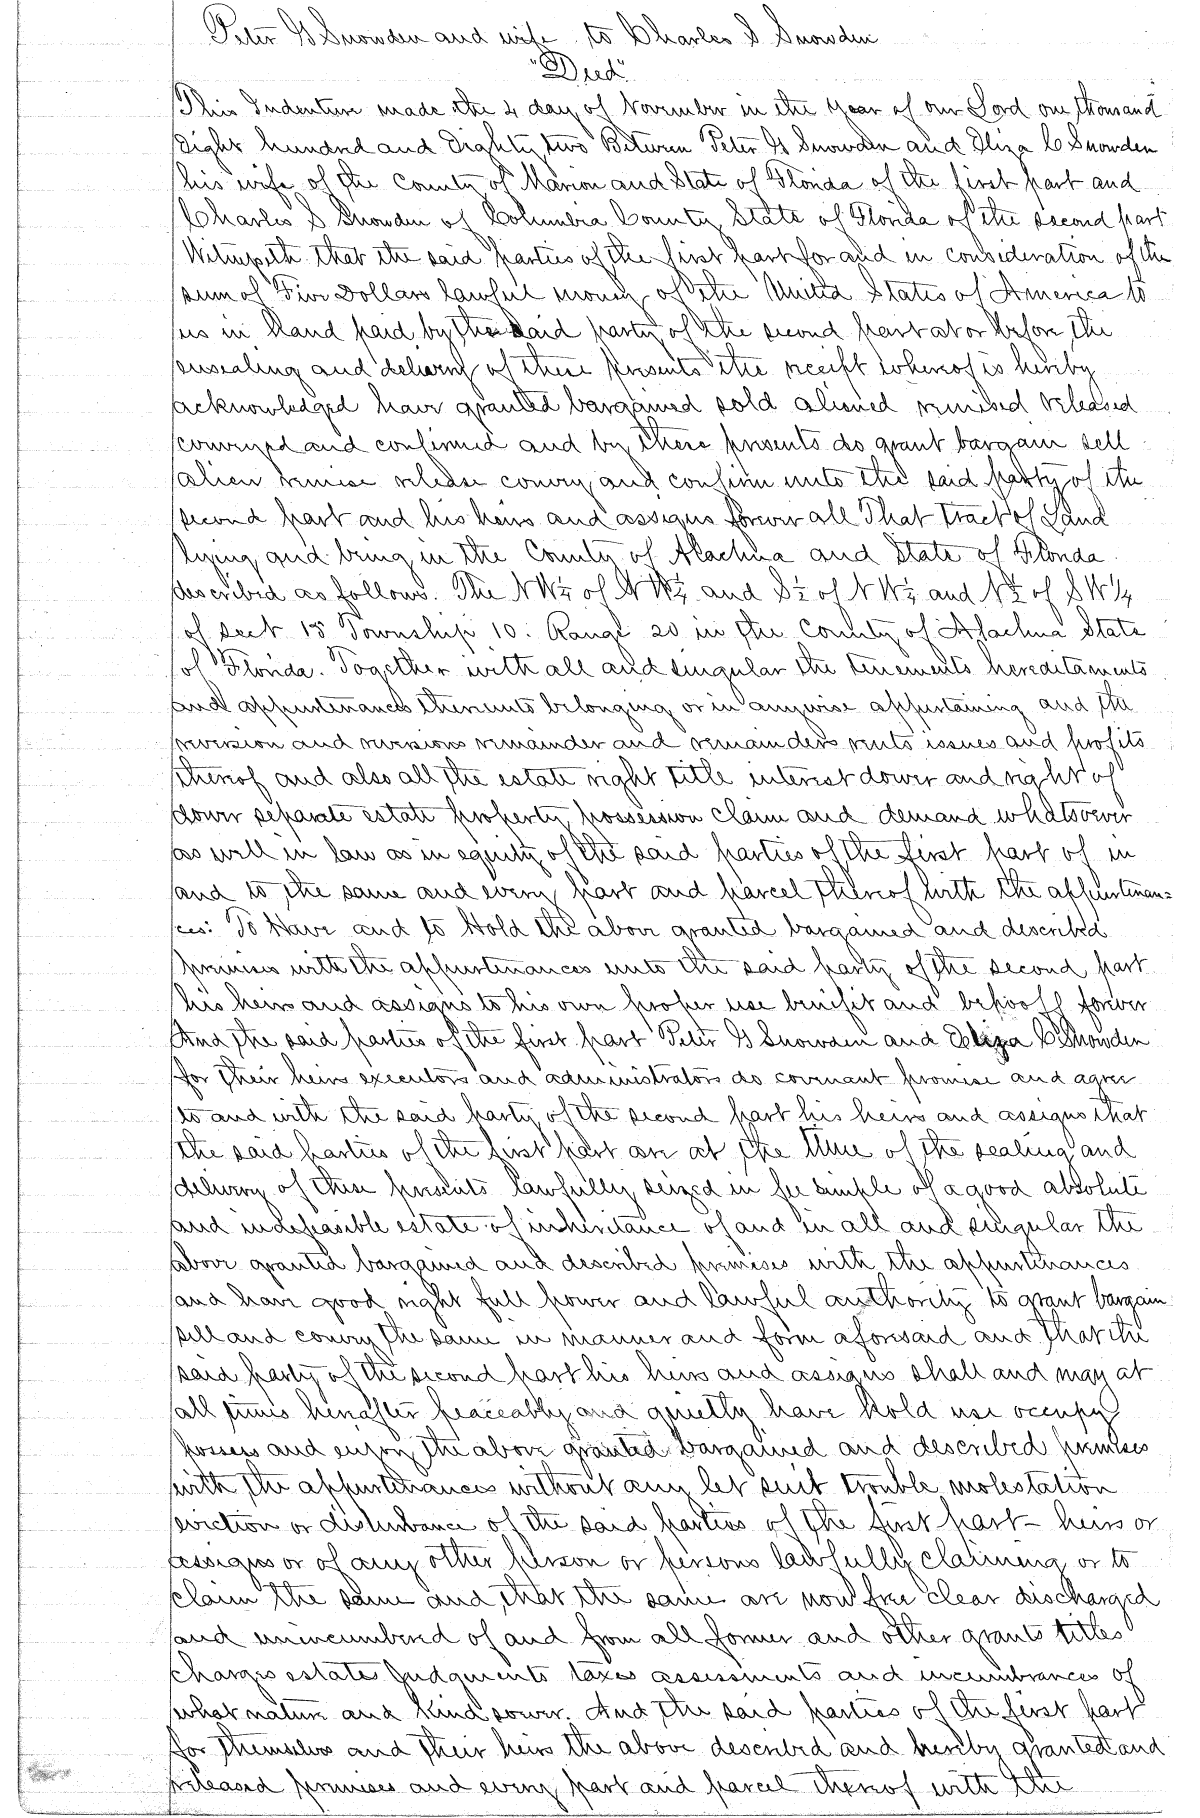 Peter G Snowden and wife to Charles S Snowden
"Deed"
This Indenture made the 4 day of November in the Year of our Lord one thousand
Eight hundred and Eighty two Between Peter G Snowden and Eliza C Snowden
his wife of the County of Marion and State of Florida of the first part and
Charles S Snowden of Columbia County State of Florida of the second part
Witnesseth that the said parties of the first part for and in consideration of the
sum of Five Dollars lawful money of the United States of America to
us in hand paid by the said party of the second part at or before the
ensealing and delivery of these presents the receipt whereof is hereby
acknowledged have granted bargained sold aliened remised released
conveyed and confirmed and by these presents do grant bargain sell
alien remise release convey and confirm unto the said party of the
second part and his heirs and assigns forever all That Tract of Land
lying and being in the County of Alachua and State of Florida
described as follows. The NW¼ of NW¼ and S½ of NW¼ and N½ of SW¼
of sect 18 Township 10. Range 20 in the County of Alachua State
of Florida. Together with all and singular the tenements hereditaments
and appurtenances thereunto belonging or in anywise appertaining and the
reversion and reversions remainder and remainders rents issues and profits
thereof and also all the estate right title interest dower and right of
dower separate estate property possession claim and demand whatsoever
as well in law as in equity of the said parties of the first part of in
and to the same and every part and parcel thereof with the appurtenan=
ces: To Have and to Hold the above granted bargained and described
premises with the appurtenances unto the said party of the second part
his heirs and assigns to his own proper use benifit and behooff forever
And the said parties of the first part Peter G Snowden and Eliza C Snowden
for their heirs executors and administrators do covenant promise and agree
to and with the said party of the second part his heirs and assigns that
the said parties of the first part are at the time of the sealing and
delivery of these presents lawfully seized in fee simple of a good absolute
and indefeasible estate of inheritance of and in all and singular the
above granted bargained and described premises with the appurtenances
and have good right full power and lawful authority to grant bargain
sell and convey the same in manner and form aforesaid and that the
said party of the second part his heirs and assigns shall and may at
all times hereafter peaceably and quietly have hold use occupy
possess and enjoy the above granted bargained and described premises
with the appurtenances without any let suit trouble molestation
eviction or disturbance of the said parties of the first part - heirs or
assigns or of any other person or persons lawfully claiming or to
claim the same and that the same are now free clear discharged
and unencumbered of and from all former and other grants titles
charges estate Judgments taxes assessments and incumbrances of
what nature and kind soever. And the said parties of the first part
for themselves and their heirs the above described and hereby granted and
released premises and every part and parcel thereof with the